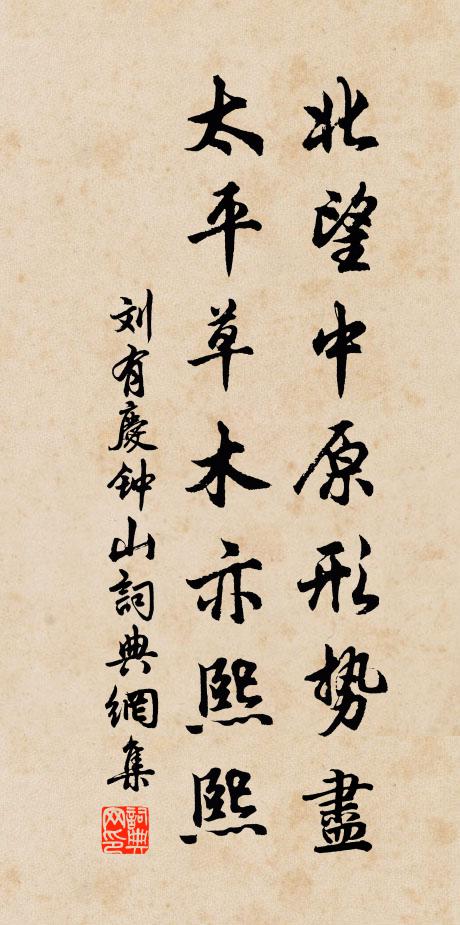 北望中原形势盡
太平草木亦熙熙
刘有慶钟山詞典網集
詞典网印